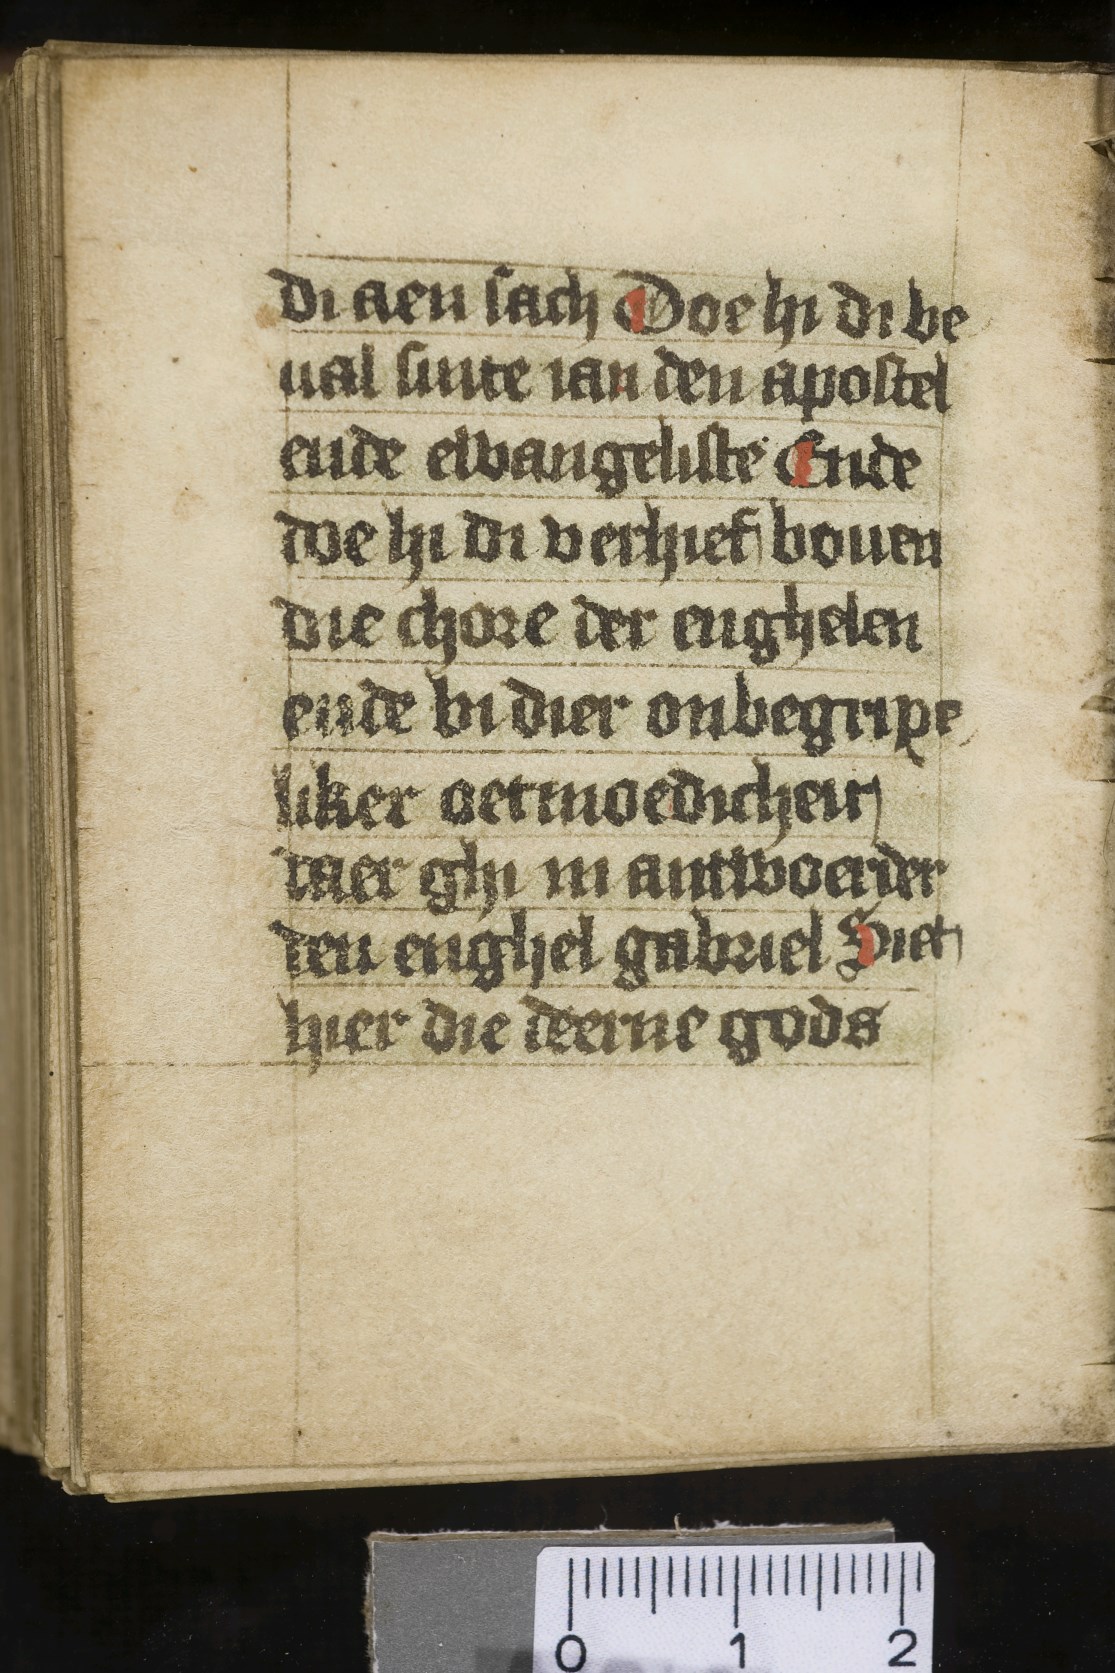 di aen sach Doe hi di be
ual sinte ian den apostel
ende ewangeliste Ende
doe hi di verhief bouen
die chore der enghelen
ende bi dier onbegripe
liker oetmoedicheit
daer ghi in antwoerder
den enghel gabriel Siet
hier die deerne gods
0 1 2